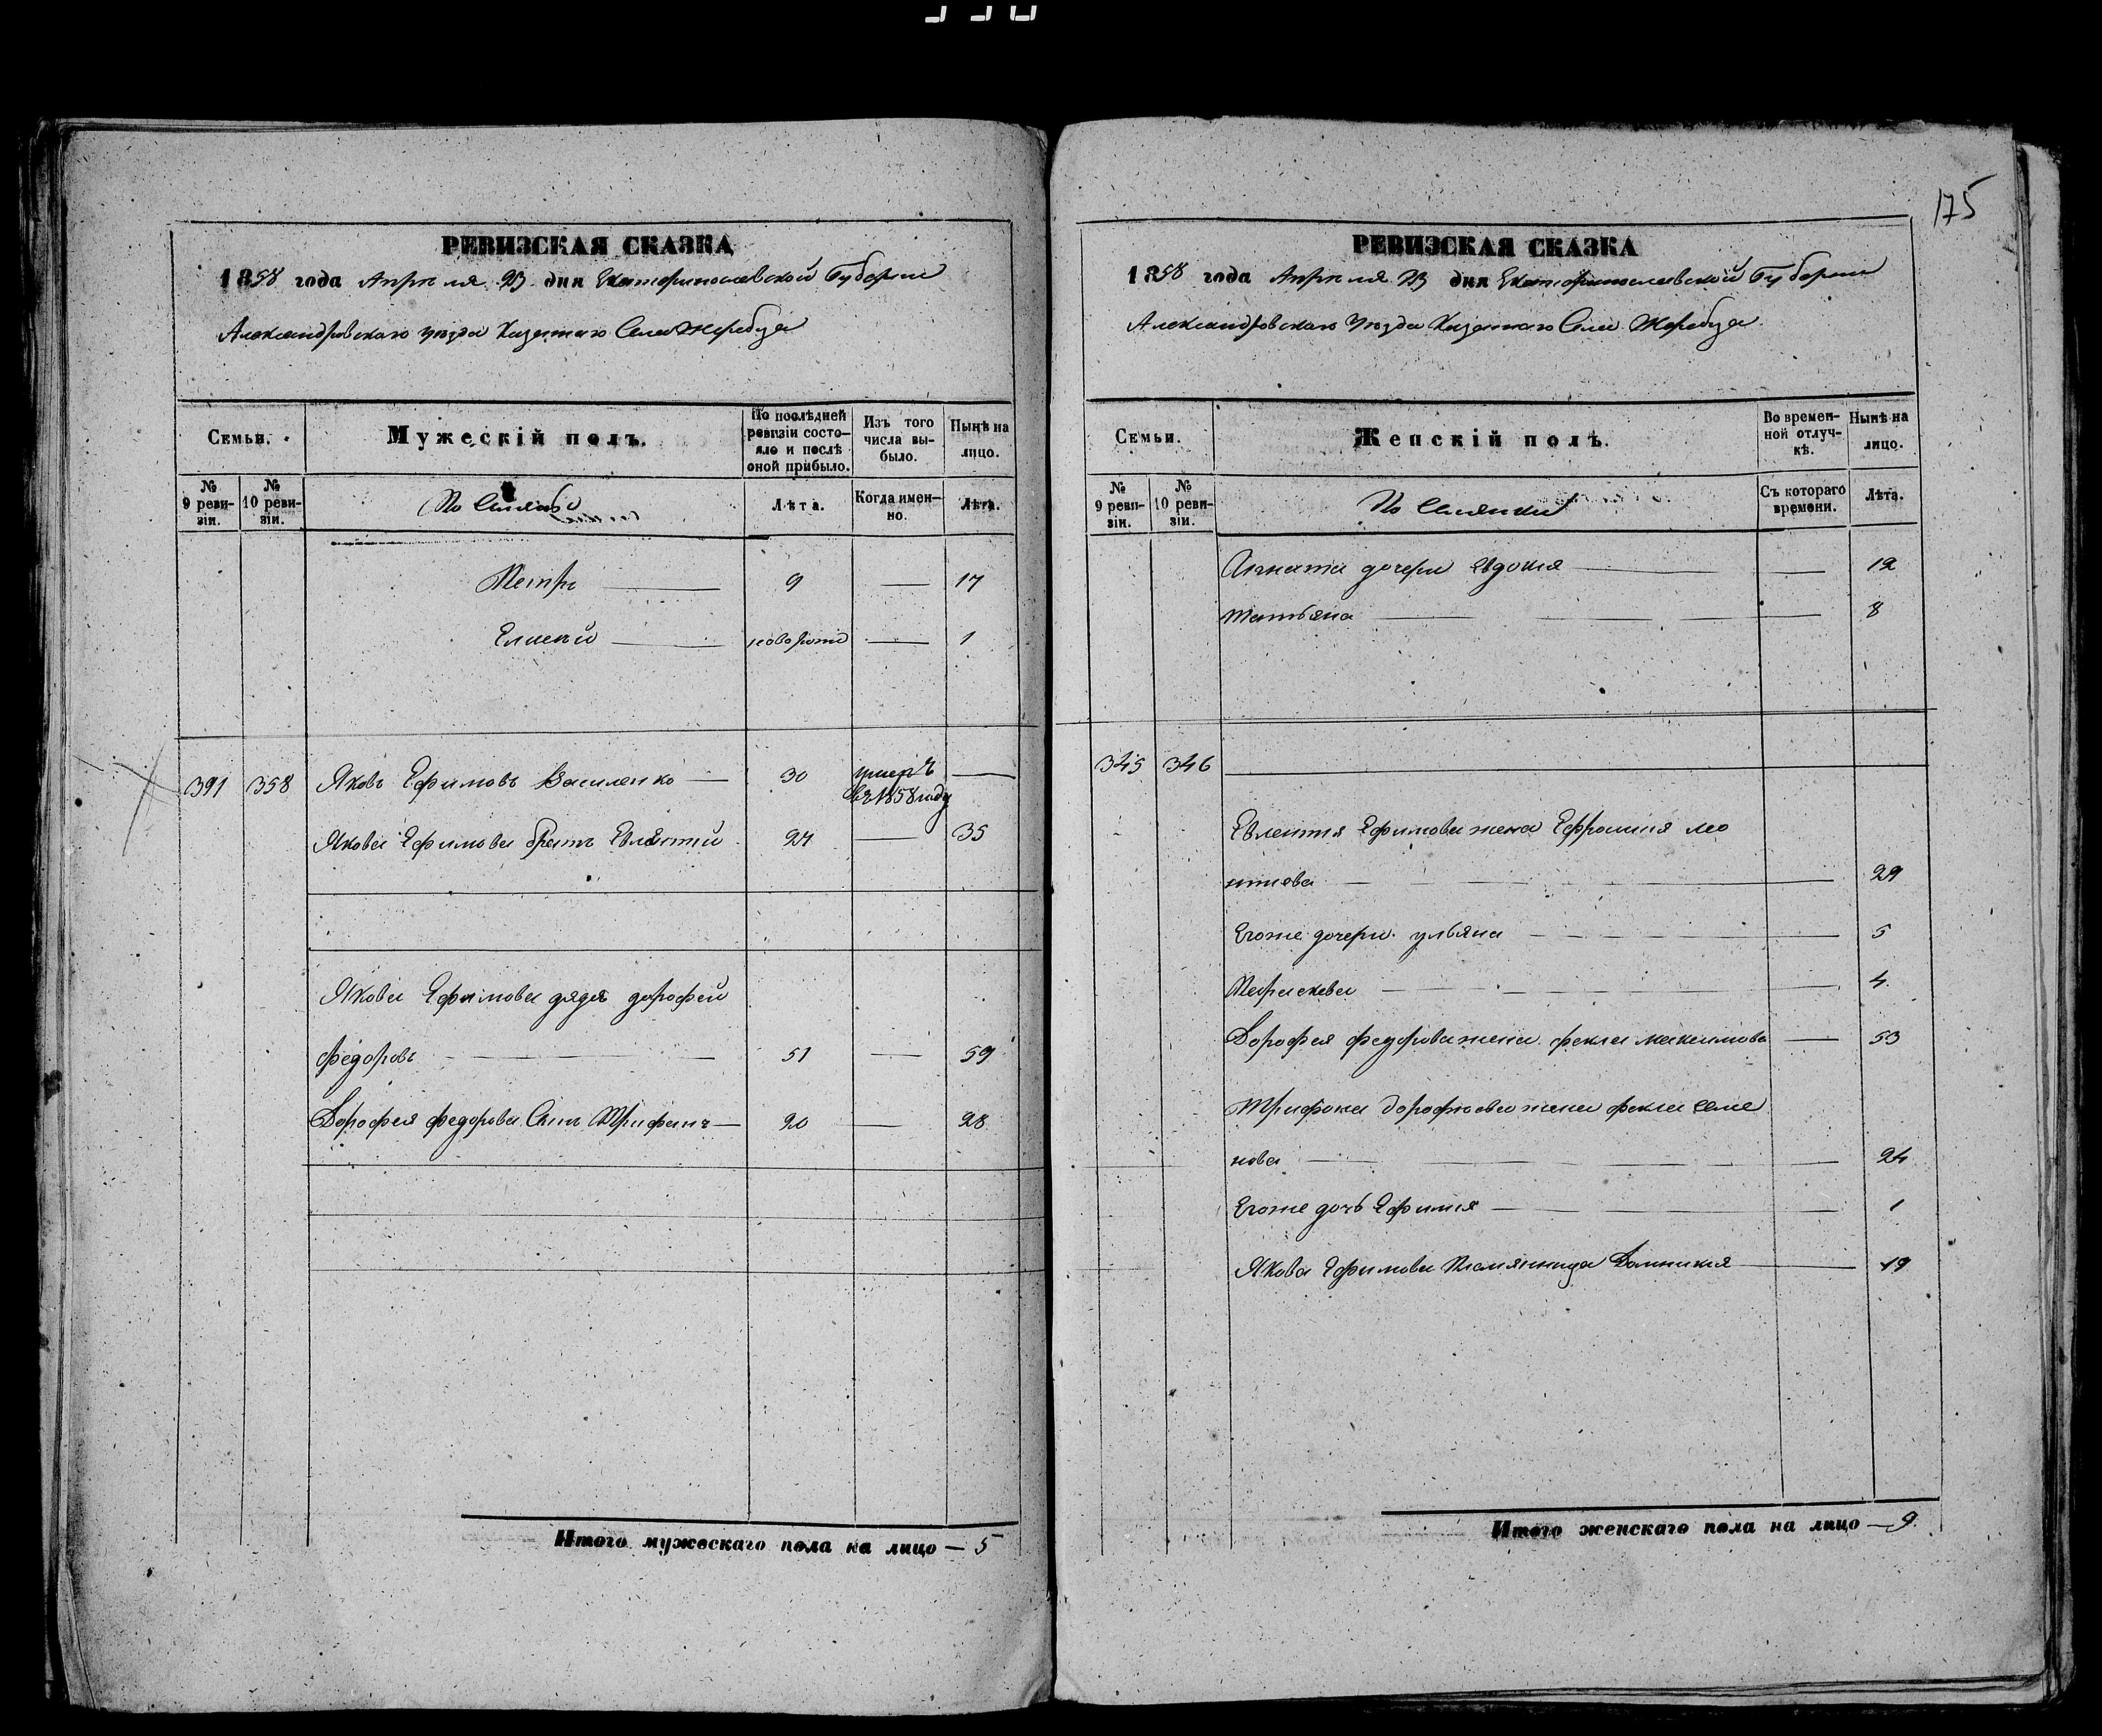 175
РЕВИЗСКАЯ СКАЗКА
1858 года Апрѣля 23 дня Екатеринославской Губерніи
Александровскаго уѣзда Казеннаго Села Жеребца
Семьи.
Мужескій полъ.
По послѣдней ревизіи состояло и послѣ оной прибыло.
Изъ того числа выбыло.
Нынѣ на лицо.
№ 9 ревизіи.
№ 10 ревизіи.
Лѣта.
Когда именно.
Лѣта.
Петръ 9 — 17
Елисей новорожд — 1
391 358 Яковъ Ефимовъ Василенко — 30 умеръ —
въ 1858 году
Якова Ефимова братъ Евлентий 27 — 35
Якова Ефимова дядя дорофей
федоровъ 51 — 59
Дорофея федорова Сынъ Трифанъ — 20 — 28
Итого мужескаго пола на лицо — 5
РЕВИЗСКАЯ СКАЗКА
1858 года Апрѣля 23 дня Екатеринославской Губерніи
Александровскаго Уѣзда Казеннаго Села Жеребца
Семьи.
Женскій полъ.
Во временной отлучкѣ.
Нынѣ на лицо.
№ 9 ревизіи.
№ 10 ревизіи.
Съ котораго времени.
Лѣта.
Игната дочери Евдокия — 12
татьяна — 8
345 346
Евлентия Ефимова жена Ефросиния лео
нтиева — 29
Егоже дочери ульяна — 5
Параскева — 4
Дорофея федорова жена фекла максимова — 53
Трифона дорофѣева жена фекла семе
нова — 24
Егоже дочь Ефимия — 1
Якова Ефимова Племянница Домникия — 19
Итого женскаго пола на лицо — 9